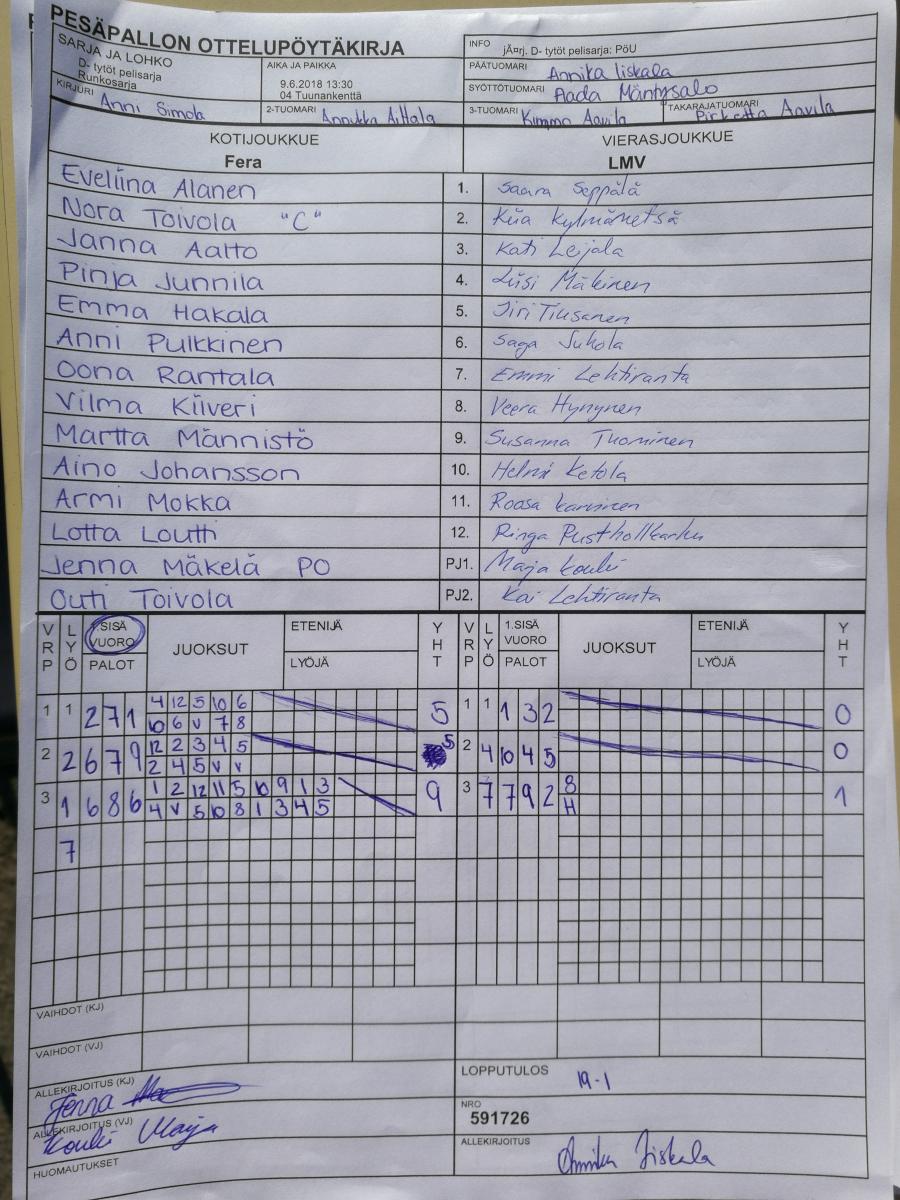 PESÄPALLON OTTELUPÖYTÄKIRJA
SARJA JA LOHKO
D- tytöt pelisarja
Runkosarja
AIKA JA PAIKKA
9.6.2018 13:30
04 Tuunankenttä
INFO järj. D- tytöt pelisarja: PöU
PÄÄTUOMARI Annika Iiskala
SYÖTTÖTUOMARI Aada Mäntysalo
KIRJURI Anni Simola
2-TUOMARI Annukka Aittala
3-TUOMARI Kimmo Aavila
TAKARAJATUOMARI Pirketta Aavila
KOTIJOUKKUE VIERASJOUKKUE
Fera LMV
Eveliina Alanen 1. Saara Seppälä
Nora Toivola "C" 2. Kiia Kylmämetsä
Janna Aalto 3. Kati Leijala
Pinja Junnila 4. Liisi Mäkinen
Emma Hakala 5. Jiri Tiusanen
Anni Pulkkinen 6. Saga Juhola
Oona Rantala 7. Emmi Lehtiranta
Vilma Kiiveri 8. Veera Hynynen
Martta Männistö 9. Susanna Tuominen
Aino Johansson 10. Helmi Ketola
Armi Mokka 11. Roosa
Lotta Louhi 12. Ringa
Jenna Mäkelä PO PJ1. Maija Kouki
Outi Toivola PJ2. Kai Lehtiranta
VRP LYÖ 1.SISÄ VUORO PALOT JUOKSUT ETENIJÄ LYÖJÄ YHT VRP LYÖ 1.SISÄ VUORO PALOT JUOKSUT ETENIJÄ LYÖJÄ YHT
1 1 2 7 1 4 12 5 10 6 5 1 1 1 3 2 0
10 6 V 7 8
2 2 6 7 9 12 2 3 4 5 5 2 4 10 4 5 0
2 4 5 V V
3 1 6 8 6 1 2 12 11 5 10 9 1 3 9 3 7 7 9 2 8 1
4 V 5 10 8 1 3 4 5 H
7
VAIHDOT (KJ)
VAIHDOT (VJ)
ALLEKIRJOITUS (KJ) Jenna
LOPPUTULOS 19-1
ALLEKIRJOITUS (VJ) Kouki Maija
NRO
591726
HUOMAUTUKSET
ALLEKIRJOITUS Annika Iiskala